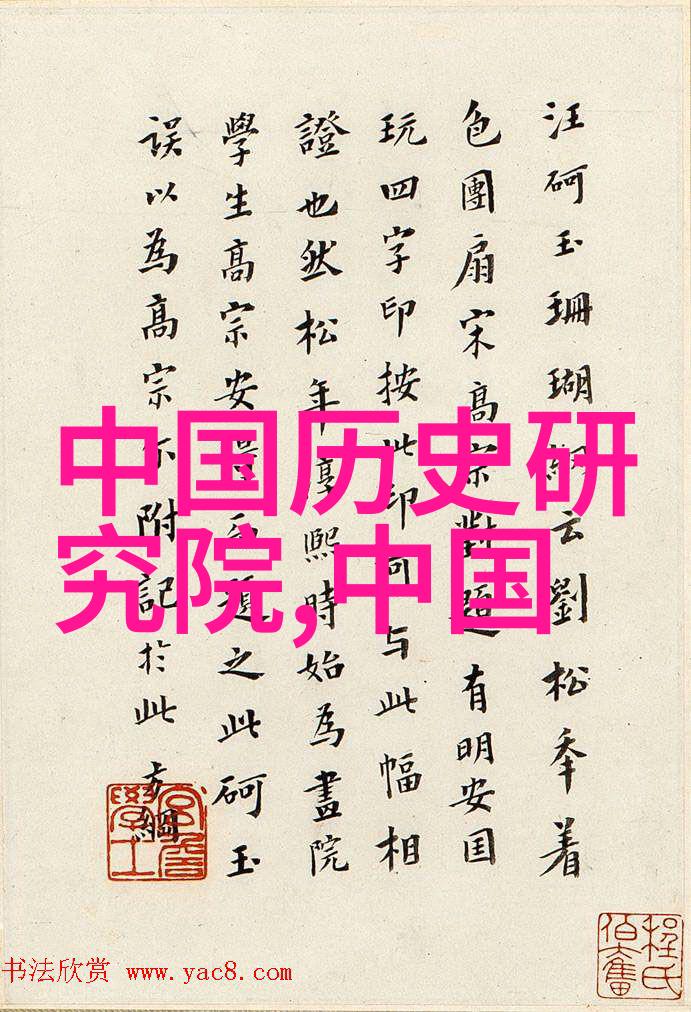 汪砢玉珊瑚云劉松秊着
色團扇宋高宗對題有明安囯
玩四字印按此印可与此幅相
證也然松年熙時始為畫院
學生高宗安題之此砢玉
誤以為高宗附記於此方綱
中国历史研
究院,中国
學士
程氏
伯奮
书法欣赏 www.yac8.com